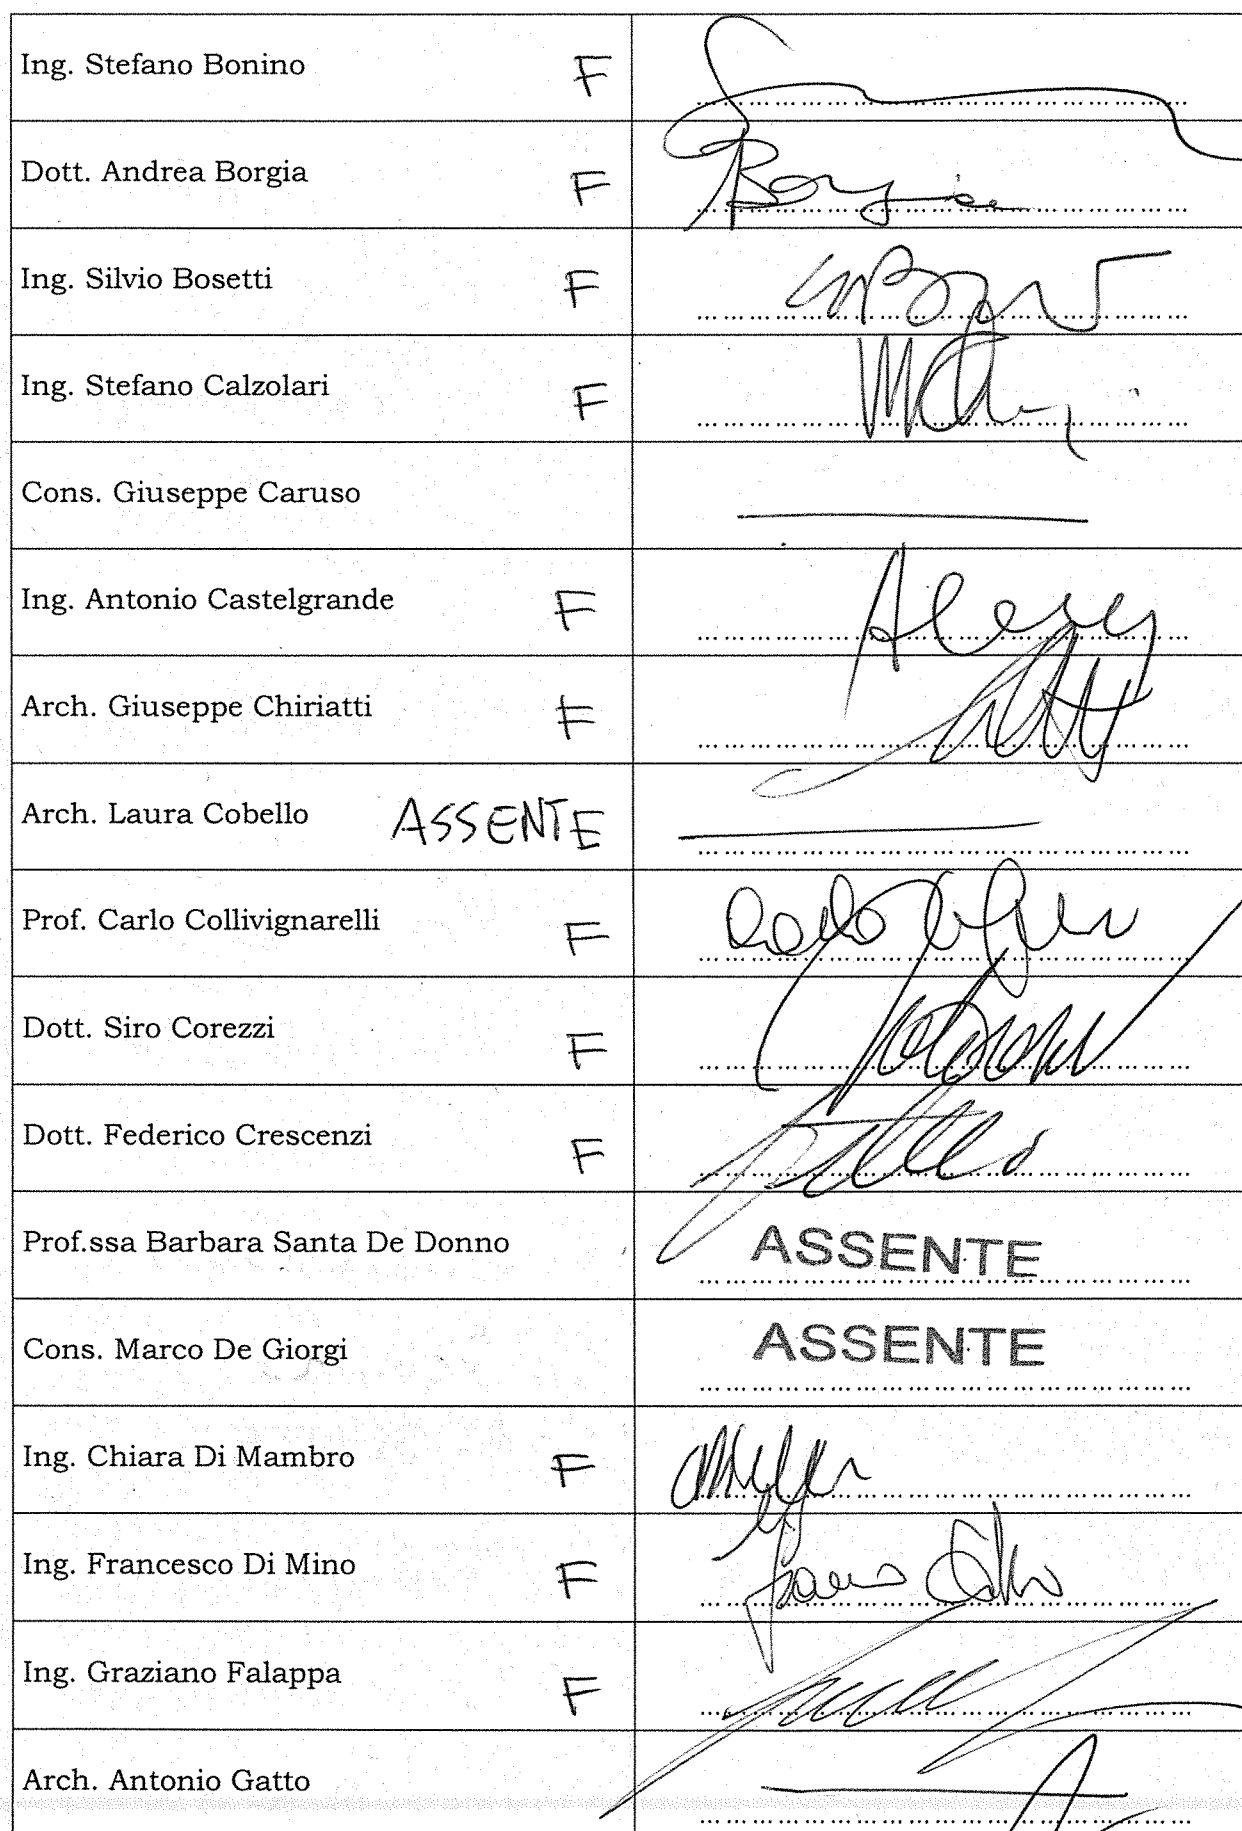 Ing. Stefano Bonino F
Dott. Andrea Borgia F Borgia
Ing. Silvio Bosetti F
Ing. Stefano Calzolari F
Cons. Giuseppe Caruso
Ing. Antonio Castelgrande F
Arch. Giuseppe Chiriatti F
Arch. Laura Cobello ASSENTE
Prof. Carlo Collivignarelli F
Dott. Siro Corezzi F
Dott. Federico Crescenzi F
Prof.ssa Barbara Santa De Donno ASSENTE
Cons. Marco De Giorgi ASSENTE
Ing. Chiara Di Mambro F
Ing. Francesco Di Mino F
Ing. Graziano Falappa F
Arch. Antonio Gatto